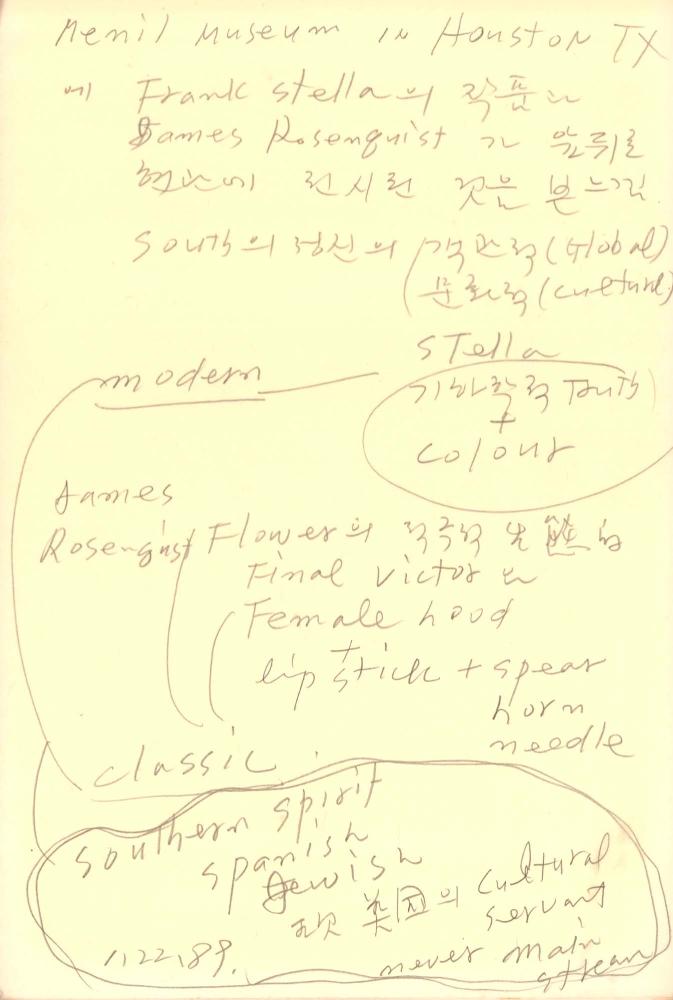 Menil Museum in Houston TX
에 Frank Stella의 작품과
James Rosenquist가 앞뒤로
현관에 전시된 것을 본 느낌
South의 정신의 객관적(Global)
문화적(cultural)
STella
modern
기하학적
+
colour
James
Rosenqist Flower의 적극적
Final victor는
Female hood
+
lip stick + spear
horn
needle
classic
southern spirit
spanish
Jewish
英国의 cultural
servant
1,22,89. never main
stream